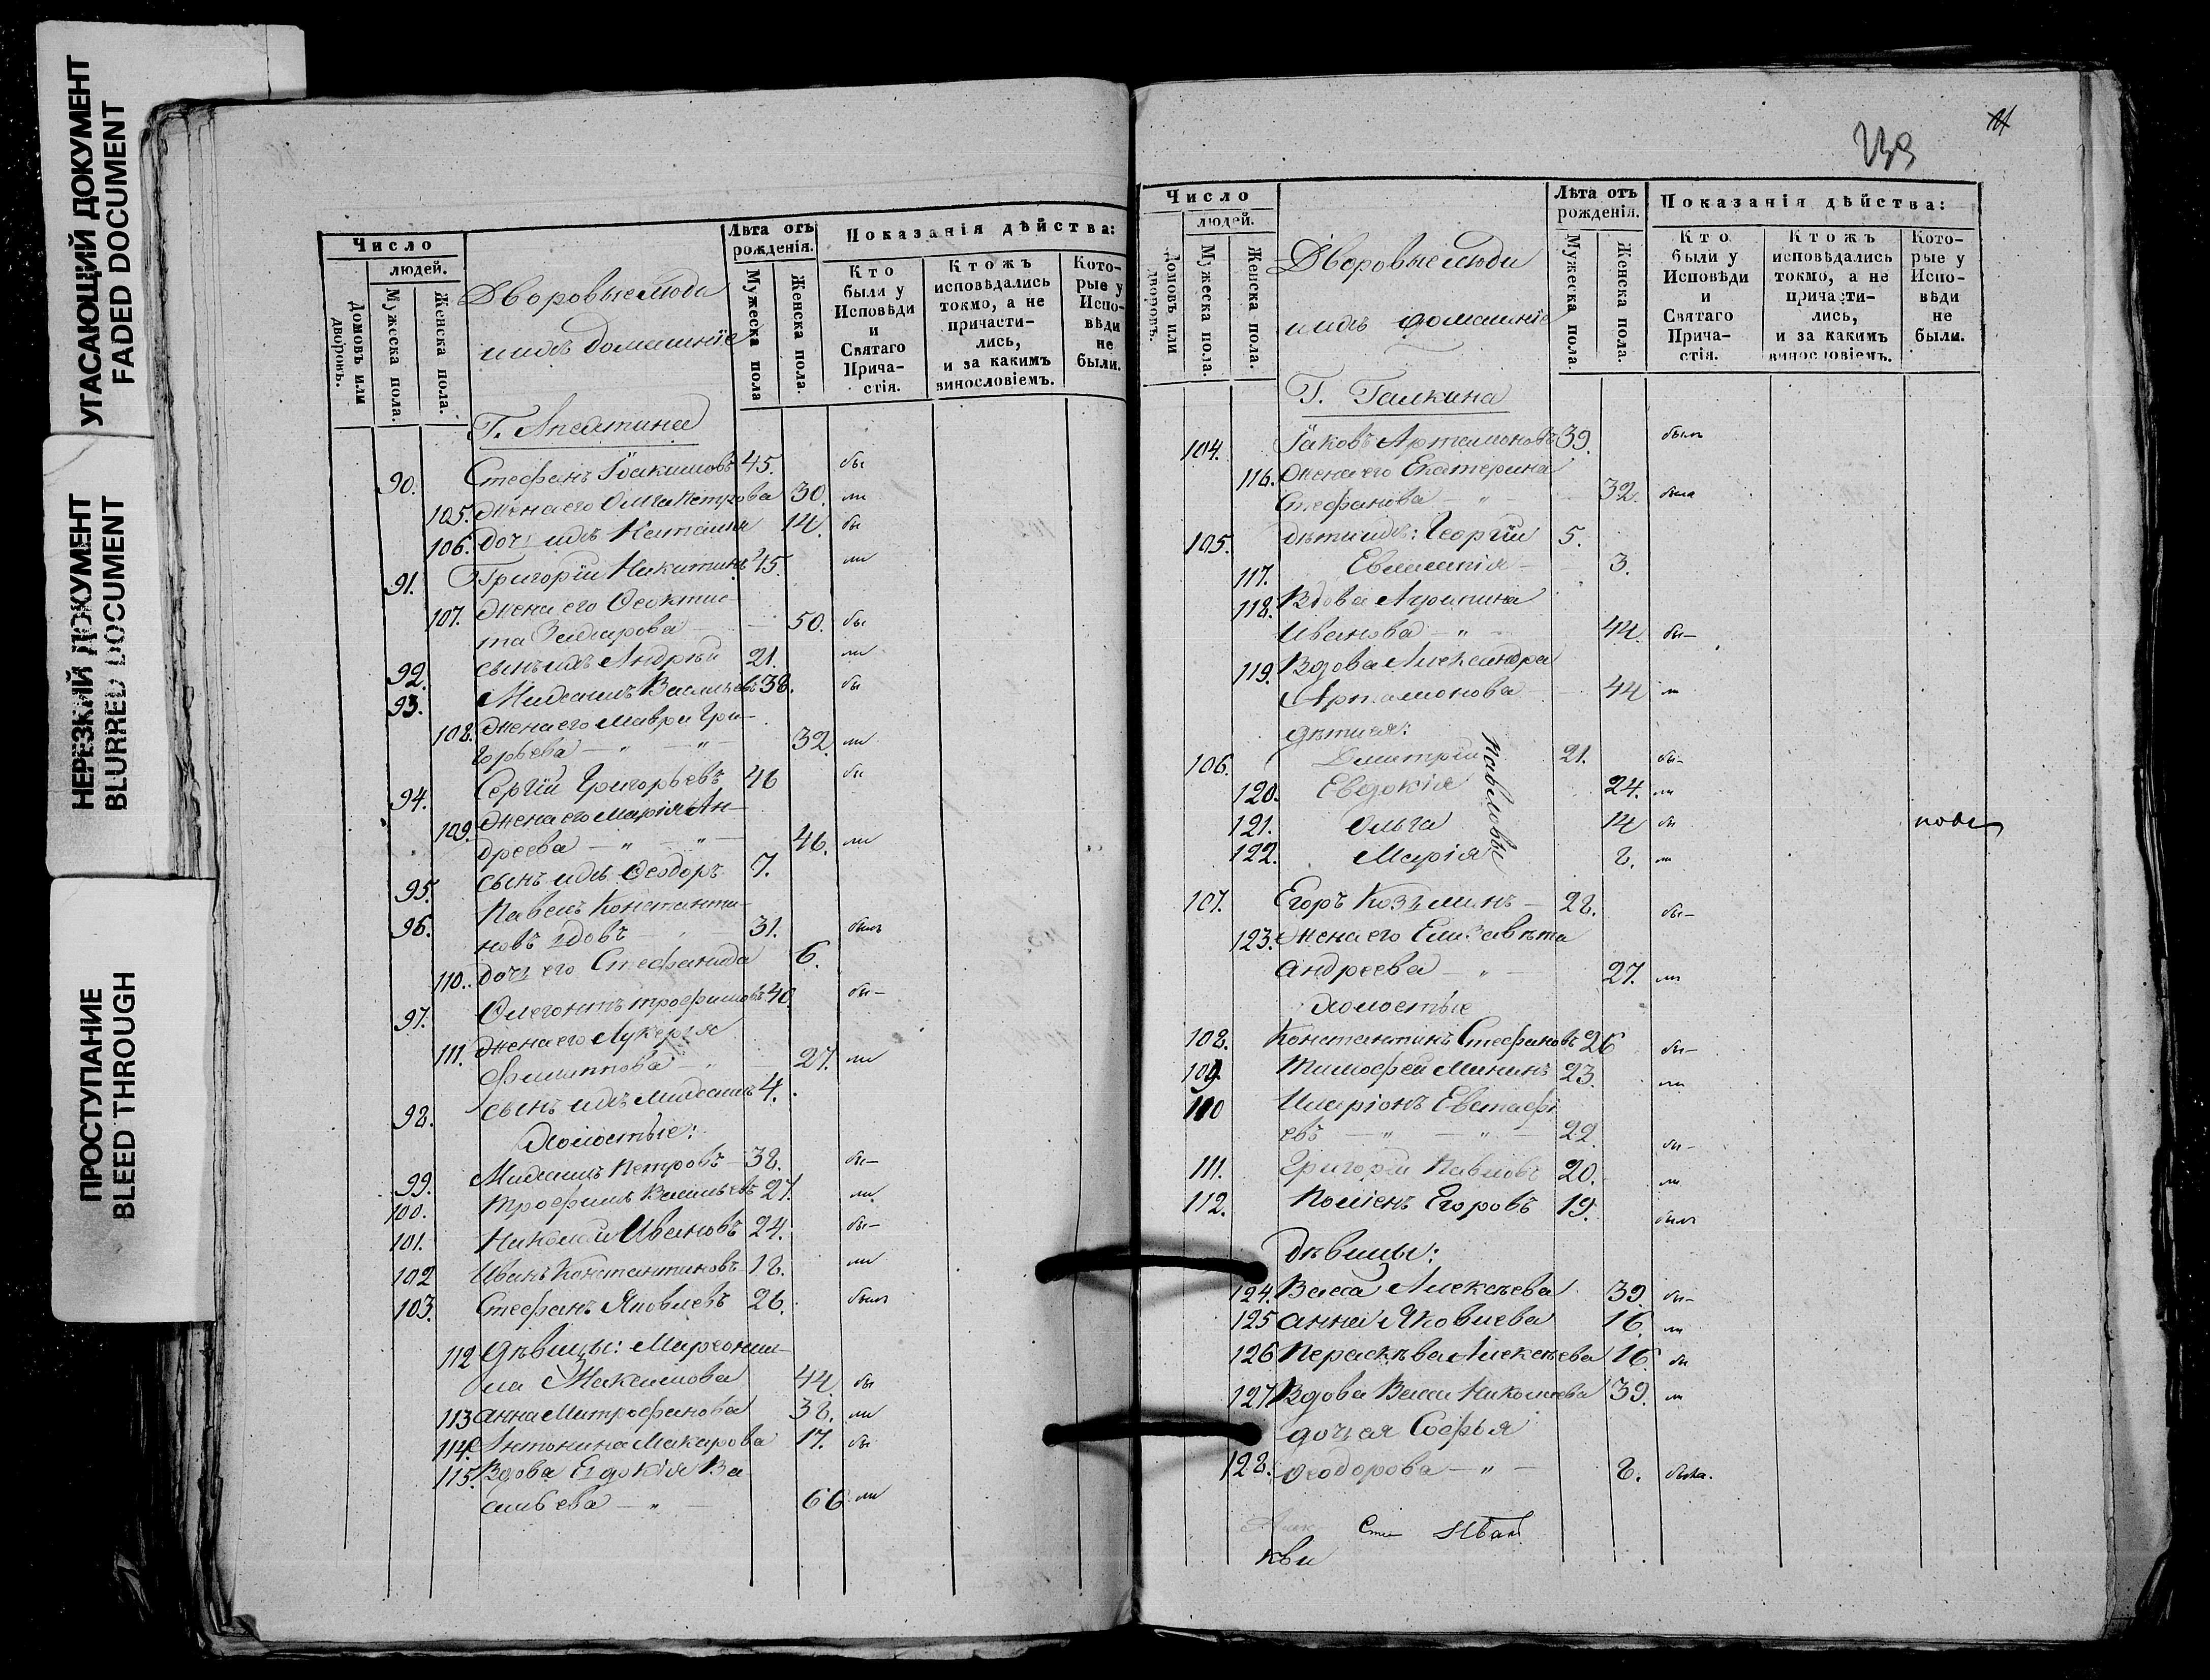 УГАСАЮЩИЙ ДОКУМЕНТ
FADED DOCUMENT
НЕРЕЗКИЙ ДОКУМЕНТ
BLURRED DOCUMENT
ПРОСТУПАНИЕ
BLEED THROUGH
Число
людей.
Домовъ или дворовъ.
Мужеска пола.
Женска пола.
Дворовые люди
и ихъ домашніе
Лѣта отъ рожденія.
Мужеска пола
Женска пола.
Показанія дѣйства:
Кто были у Исповѣди и Святаго Прича-стія.
Ктожъ исповѣдались токмо, а не причасти-лись, и за какимъ винословіемъ.
Кото-рые у Испо-вѣди не были.
Г. Апехтина
90. Стефанъ Іоакимовъ 45. бы
105. Жена его Ольга Петрова 30. ли
106. дочь ихъ Наталія 14. бы
91. Григорій Никитинъ 45. ли
107. Жена его Ѳеоктис-
та Захарова 50. бы
92. сынъ ихъ Андрей 21. ли
93. Михаилъ Васильевъ 38. бы
108. Жена его Мавра Гри-
горьева — " — " — 32. ли
94. Сергій Григорьевъ 46 бы
109. Жена его Марія Ан-
дреева — " — " — 46. ли
95. сынъ ихъ Ѳеодоръ 7.
96. Павелъ Константи-
новъ вдовъ — 31. былъ
110. дочь его Стефанида 6.
97. Флегонтъ Трофимовъ 40. бы-
111. Жена его Лукерія
Филиппова — " — 27. ли
98. сынъ ихъ Михаилъ 4.
Холостые:
99. Михаилъ Петровъ 38. бы-
100. Трофимъ Васильевъ 27. ли
101. Николай Ивановъ 24. бы-
102 Иванъ Константиновъ 18. ли
103. Стефанъ Яковлевъ 26. былъ
112 Дѣвицы: Мареоніи-
ла Максимова 44. бы
113 Анна Митрофанова 38. ли
114. Антонина Макарова 17. бы
115. Вдова Евдокія Ва
сильева — " — 66 ли
239
11
Число
людей.
Домовъ или дворовъ.
Мужеска пола.
Женска пола.
Дворовые люди
и ихъ домашніе
Лѣта отъ рожденія.
Мужеска пола.
Женска пола.
Показанія дѣйства:
Кто были у Исповѣди и Святаго Прича-стія.
Ктожъ исповѣдались токмо, а не причасти-лись, и за какимъ винословіемъ.
Кото-рые у Испо-вѣди не были.
Г. Галкина
104. Іаковъ Артамоновъ 39. былъ
116. Жена его Екатерина
Стефанова — " — 32. была
105. дѣти ихъ: Георгій 5.
117. Евлампія — 3.
118. Вдова Агрипина
Иванова — " — 44. бы-
119. Вдова Александра
Артамонова 44 ли
дѣти ея:
106. Димитрій 21. бы-
120. Евдокія 24. ли
121. Ольга 14 бы
122. Марія 8. ли
Павловы
107. Егоръ Козьминъ — 28. бы-
123. Жена его Елизавета
Андреева — " — 27. ли
Холостые
108. Константинъ Стефановъ 26 бы-
109. Тимофей Мининъ 23. ли
110 Иларіонъ Евстафі
евъ — " — " — 22. бы-
111. Григорій Павловъ 20. ли
112. Поліенъ Егоровъ 19. былъ
дѣвицы:
124. Васса Алексѣева 39. бы-
125 Анна Яковлева 16. ли
126 Параскѣва Алексѣева 16. бы
127 Вдова Васса Николаева 39. ли
дочь ея Софья
128. Ѳеодорова — " — 8. была.